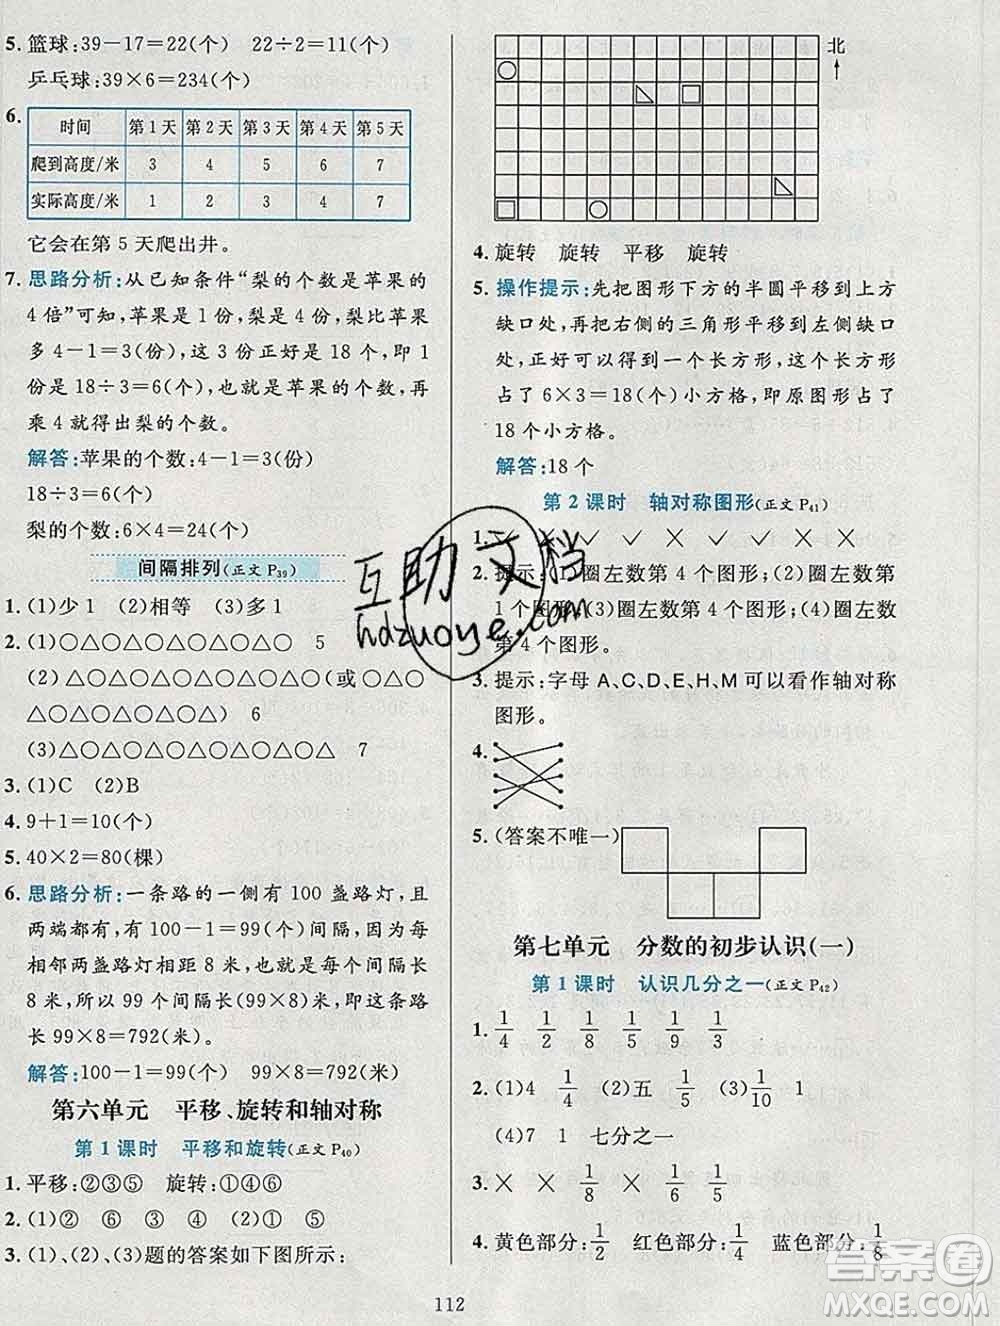 5. 篮球:39−17=22(个)  22÷2=11(个)
乒乓球:39×6=234(个)
6.
时间 第1天 第2天 第3天 第4天 第5天
爬到高度/米 3 4 5 6 7
实际高度/米 1 2 3 4 7
它会在第 5 天爬出井。
7. 思路分析:从已知条件“梨的个数是苹果的
4 倍”可知，苹果是 1 份，梨是 4 份，梨比苹果
多 4−1=3(份)，这 3 份正好是 18 个，即 1
份是 18÷3=6(个)，也就是苹果的个数，再
乘 4 就得出梨的个数。
解答:苹果的个数:4−1=3(份)
18÷3=6(个)
梨的个数:6×4=24(个)
间隔排列(正文 P39)
1. (1)少 1  (2)相等  (3)多 1
2. (1)○△○△○△○△○△○△  5
(2)△○△○△○△○△○△○(或 ○△○
△○△○△○△○△○△)  6
(3)△○△○△○△○△○△○△  7
3. (1)C  (2)B
4. 9+1=10(个)
5. 40×2=80(棵)
6. 思路分析:一条路的一侧有 100 盏路灯，且
两端都有，有 100−1=99(个)间隔，因为每
相邻两盏路灯相距 8 米，也就是每个间隔长
8 米，所以 99 个间隔长 99×8=792(米)，即这条路
长 99×8=792(米)。
解答:100−1=99(个)  99×8=792(米)
第六单元  平移、旋转和轴对称
第 1 课时  平移和旋转(正文 P40)
1. 平移:②③⑤  旋转:①④⑥
2. (1)②  ⑥  ③  (2)④  ①  ⑤
3. (1)、(2)、(3)题的答案如下图所示:
北
4. 旋转  旋转  平移  旋转
5. 操作提示:先把图形下方的半圆平移到上方
缺口处，再把右侧的三角形平移到左侧缺口
处，正好可以得到一个长方形，这个长方形
占了 6×3=18(个)小方格，即原图形占了
18 个小方格。
解答:18 个
第 2 课时  轴对称图形(正文 P41)
2. 提示:(1)圈左数第 4 个图形;(2)圈左数第
1 个图形;(3)圈左数第 4 个图形;(4)圈左
数第 4 个图形。
3. 提示:字母 A、C、D、E、H、M 可以看作轴对称
图形。
4.
5. (答案不唯一)
第七单元  分数的初步认识(一)
第 1 课时  认识几分之一(正文 P42)
1. 1/4  1/8  1/5  1/9  1/3
2. (1)4  1/4  (2)五  1/5  (3)1/10
(4)7  1  七分之一
3. ×  ×  1/8  ×  1/8  1/5
4. 黄色部分:1/2  红色部分:1/4  蓝色部分:1/8
112
互助文档
hdzuoye.com
答案圈
MXQE.COM